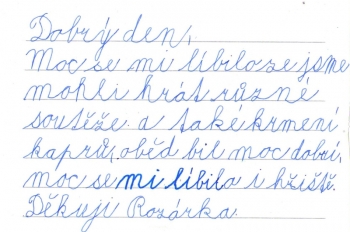 Dobrý den,
Moc se mi líbilo ze jsme
mohli hrát různé
soutěže. a také krmení
kaprů, oběd bil moc dobrí,
moc se mi líbilo i hžiště.
Děkuji Rozárka.